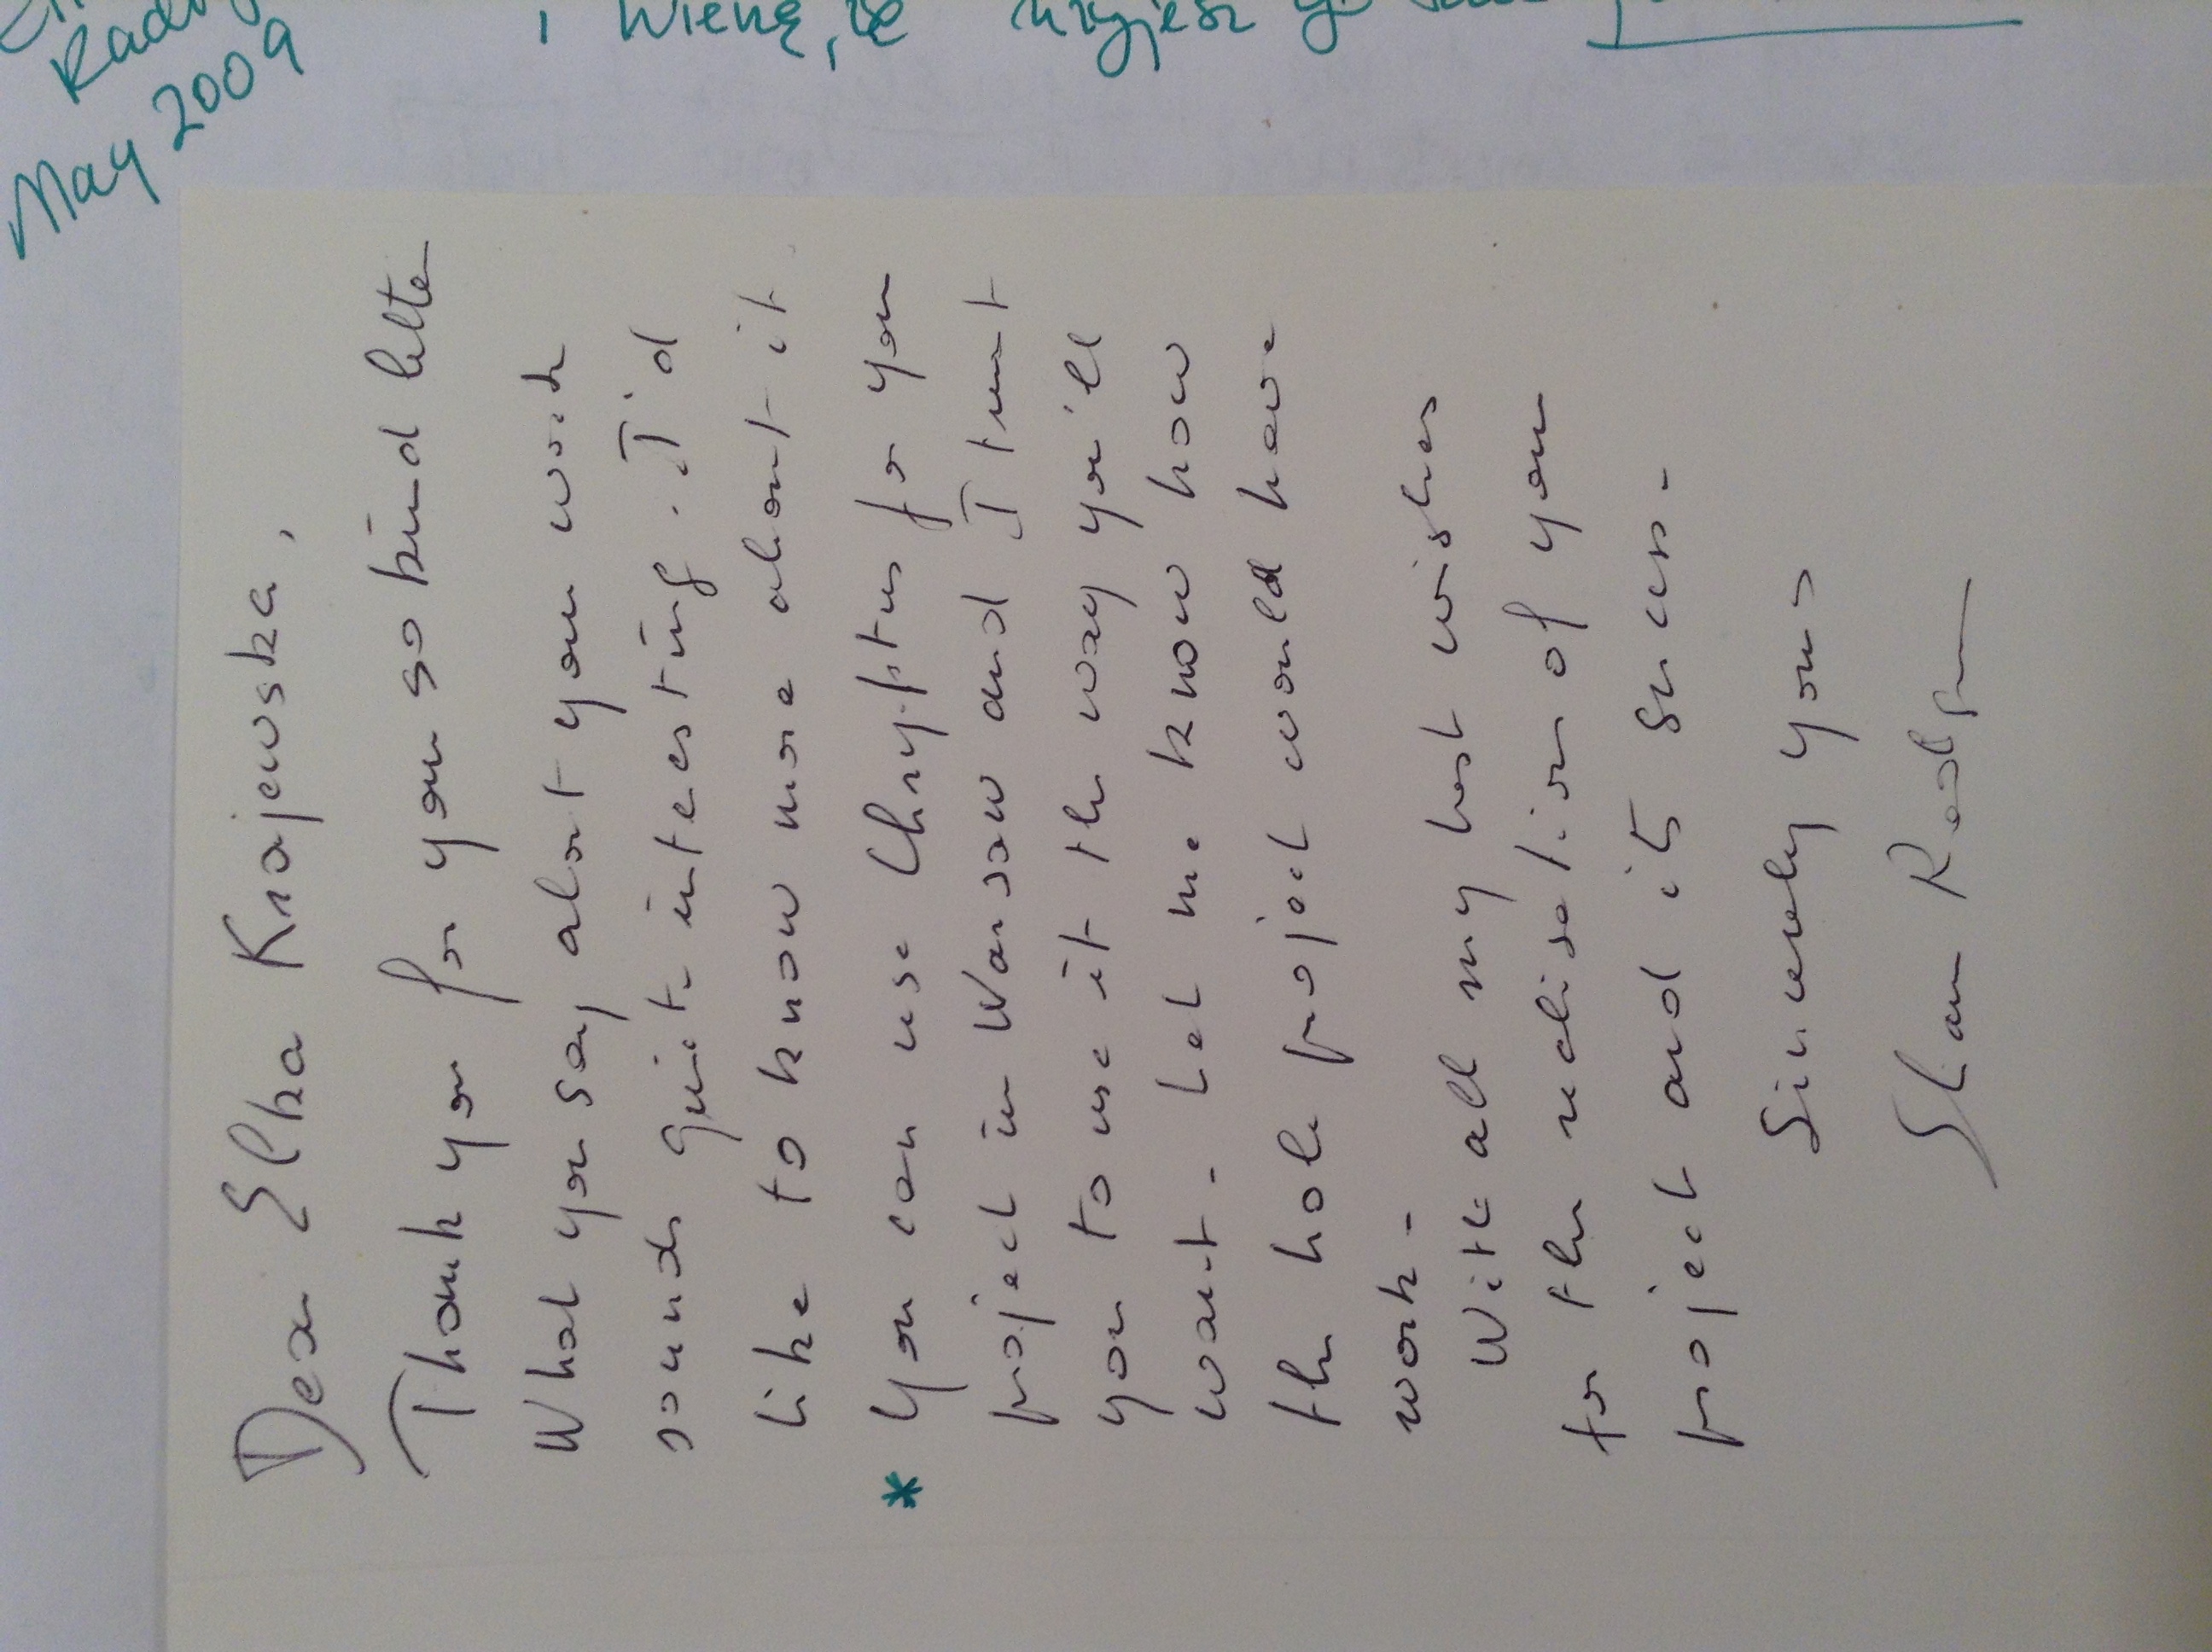 Radu
May 2009
i wierzę, że użyjesz go
Dear Elka Krajewska,
Thank you for your so kind letter
What you say about your work
sounds quite interesting. I'd
like to know more about it.
* You can use Chryptus for your
project in Warsaw and I trust
you to use it the way you'll
want - Let me know how
the hole project would have
work -
With all my best wishes
for the realisation of your
project and its success -
Sincerely yours